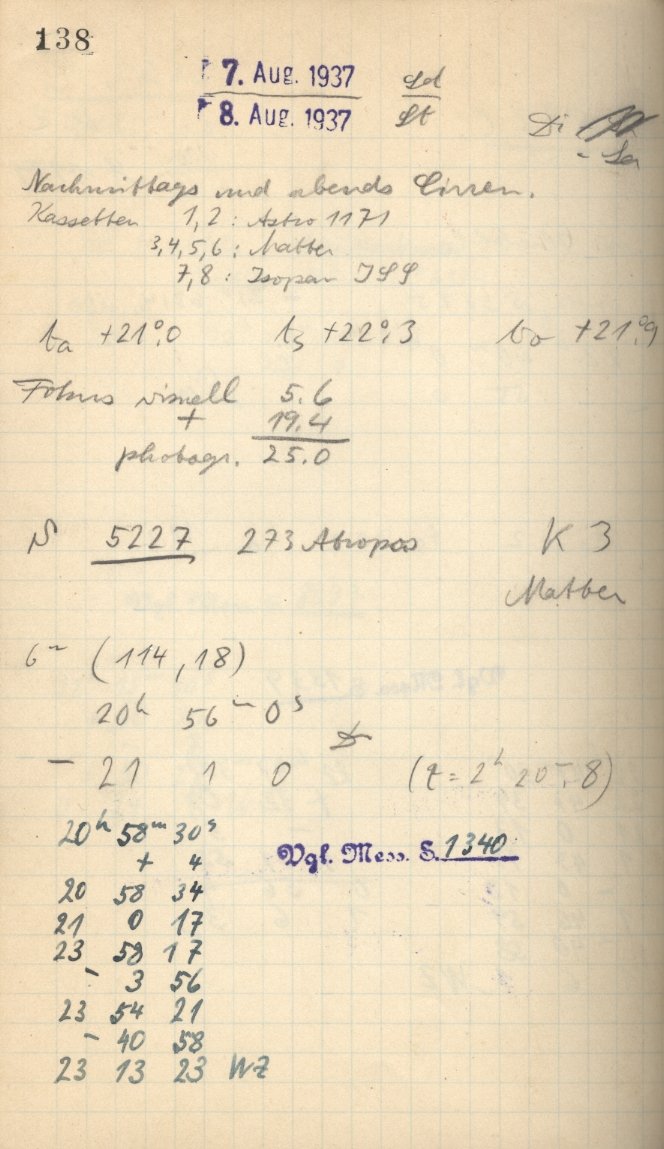 138
7. Aug. 1937 Sd
8. Aug. 1937 St
Di
- Sa
Nachmittags und abends Cirren.
Kassetten 1,2 : Astro 1171
3,4,5,6 : Matter
7,8 : Isopan ISS
ta +21°,0 ts +22°,3 to +21°,9
Fokus visuell 5.6
+ 19.4
photogr. 25.0
N 5227 273 Atropos K 3
Matter
6m (114,18)
20h 56m 0s
- 21 1 0 (t = 2h 20m.8)
20h 58m 30s
+ 4
20 58 34
21 0 17
23 58 17
- 3 56
23 54 21
- 40 58
23 13 23 WZ
Vgl. Mess. S. 1340